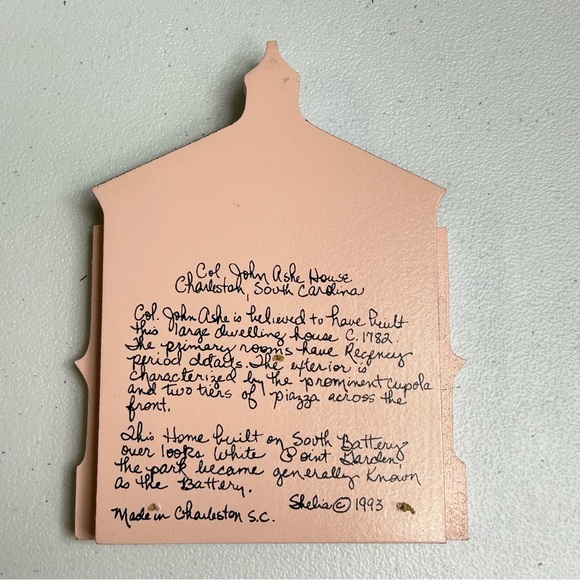 Col. John Ashe House
Charleston, South Carolina
Col. John Ashe is believed to have built
this large dwelling house C. 1782.
The primary rooms have Regency
period details. The exterior is
characterized by the prominent cupola
and two tiers of piazza across the
front.
This Home built on South Battery
over looks White Point Garden,
the park became generally known
as the Battery.
Shelia © 1993
Made in Charleston S.C.